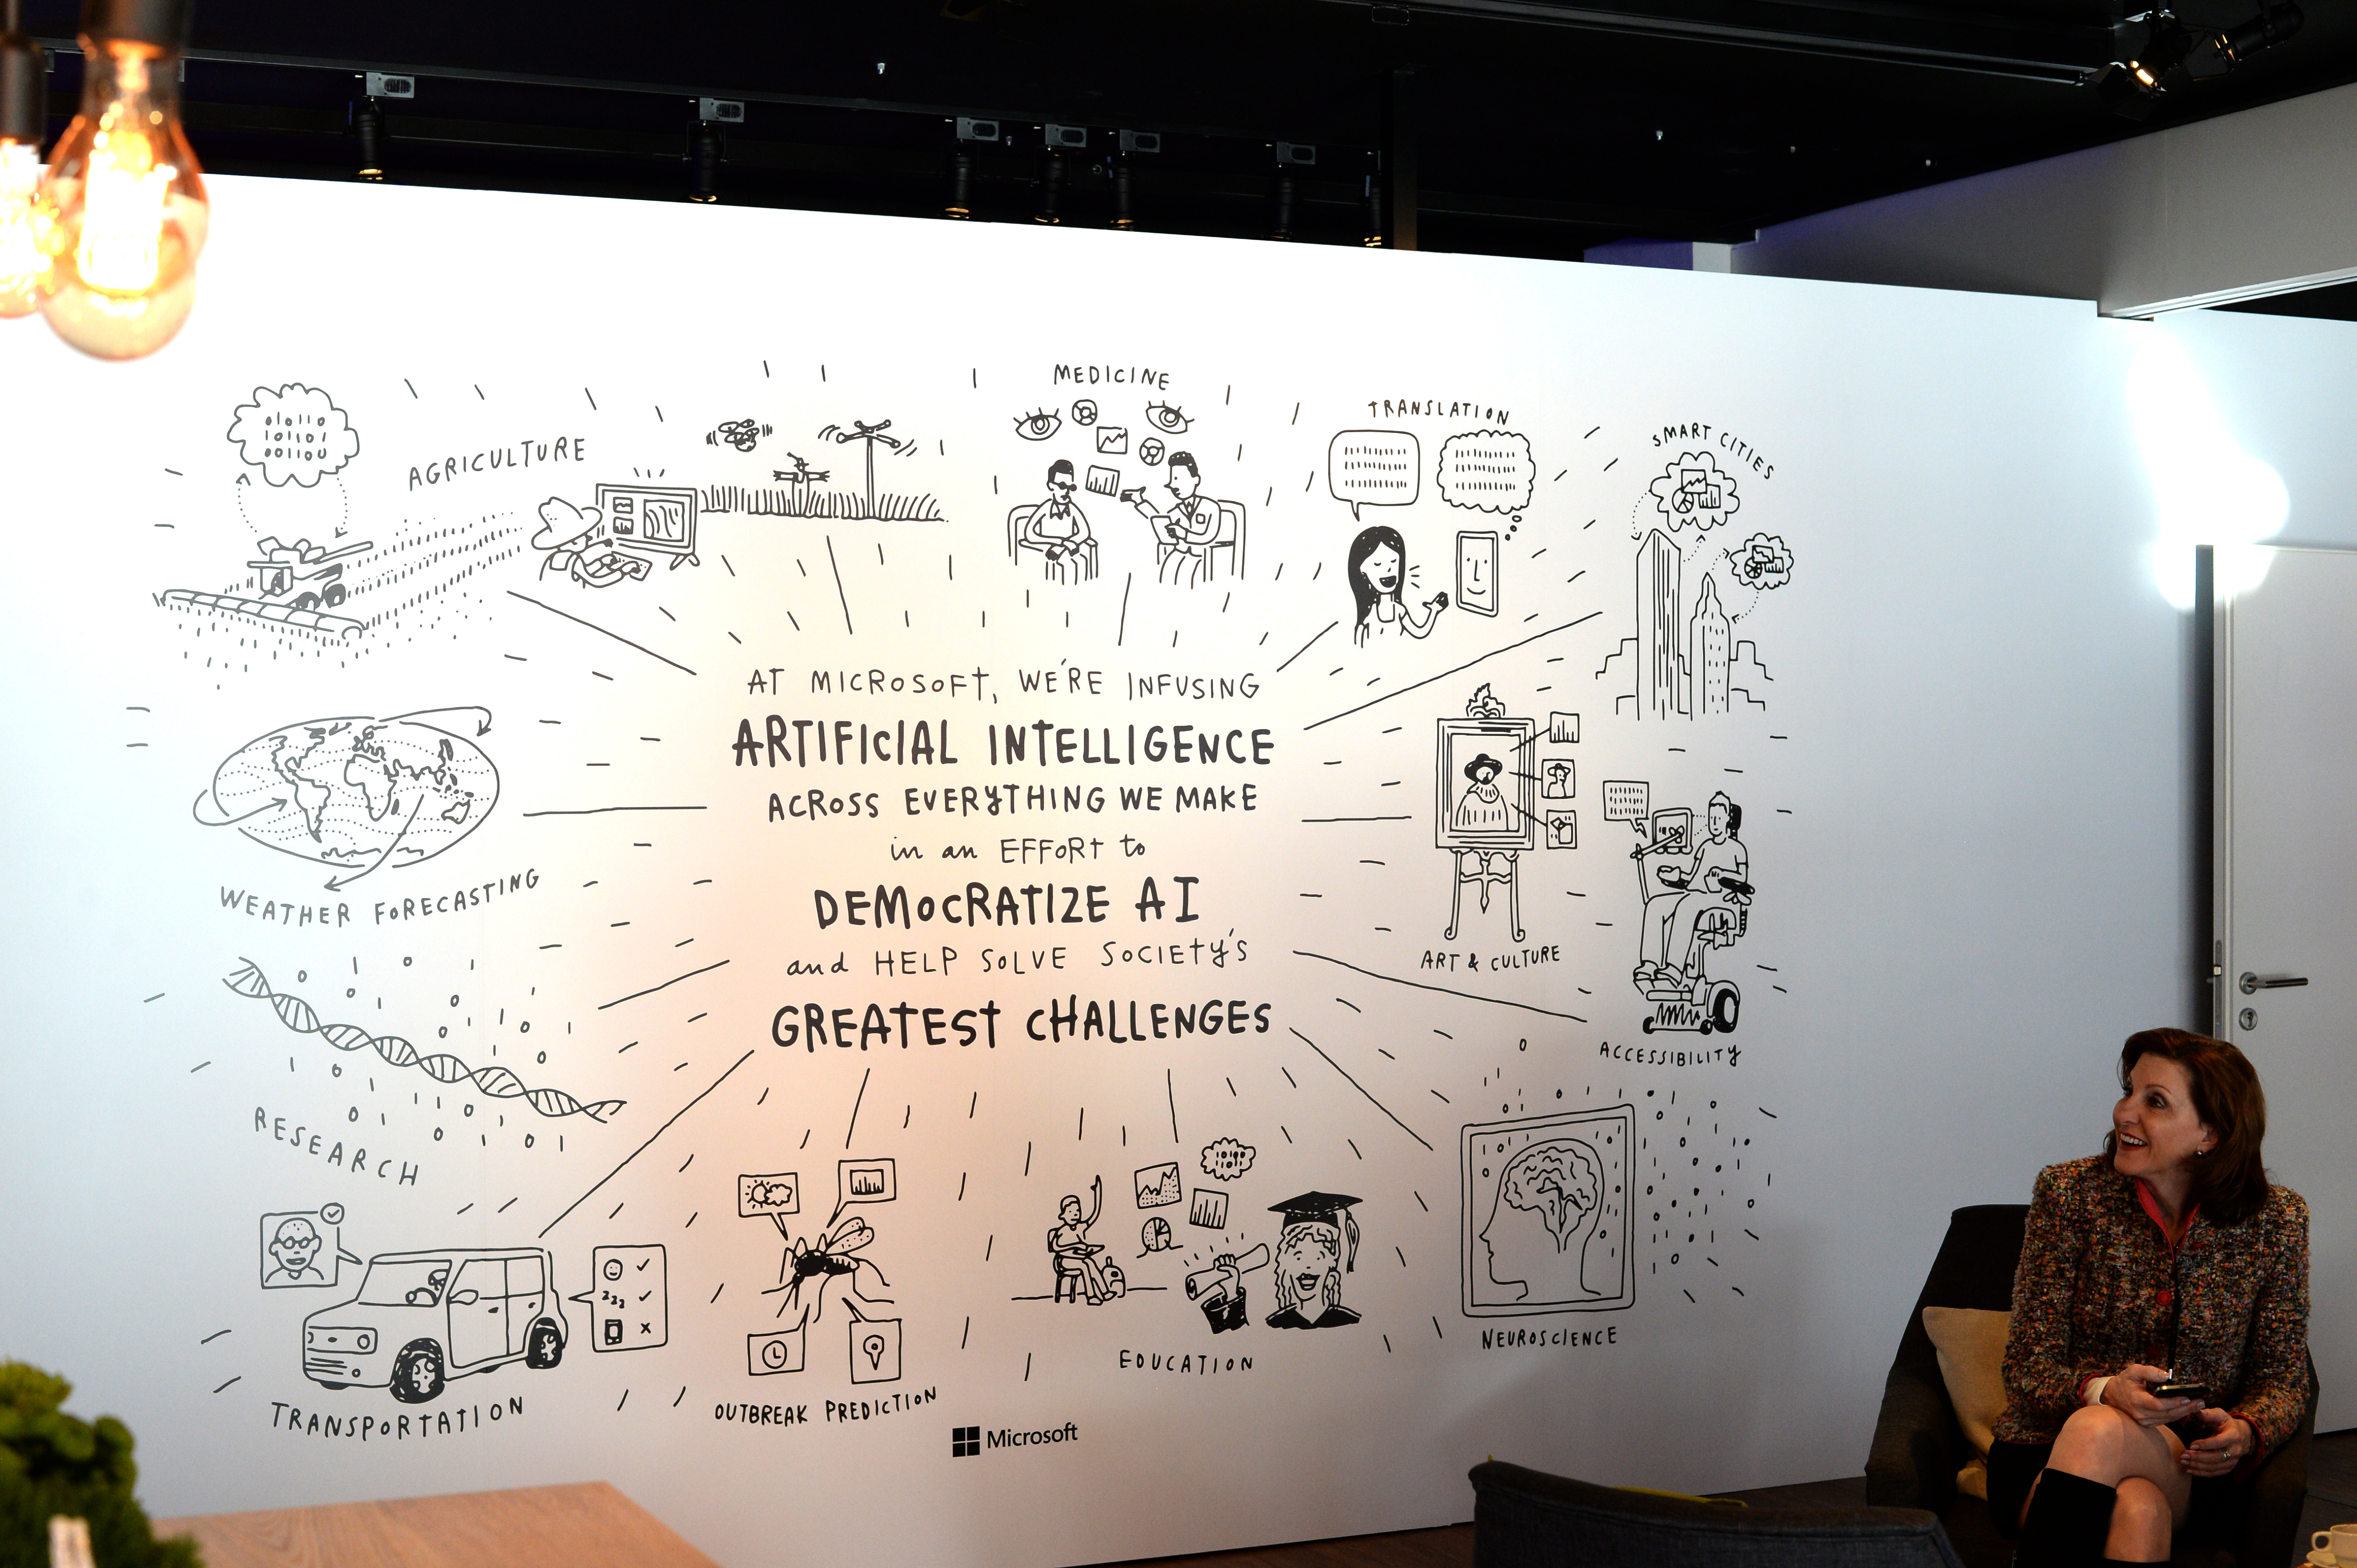 MEDICINE
TRANSLATION
SMART CITIES
AGRICULTURE
010110
101101
001100
AT MICROSOFT, WE'RE INFUSING
ARTIFICIAL INTELLIGENCE
ACROSS EVERYTHING WE MAKE
in an EFFORT to
DEMOCRATIZE AI
and HELP SOLVE SOCIETY'S
GREATEST CHALLENGES
WEATHER FORECASTING
ART & CULTURE
ACCESSIBILITY
RESEARCH
zzz
NEUROSCIENCE
EDUCATION
TRANSPORTATION
OUTBREAK PREDICTION
Microsoft